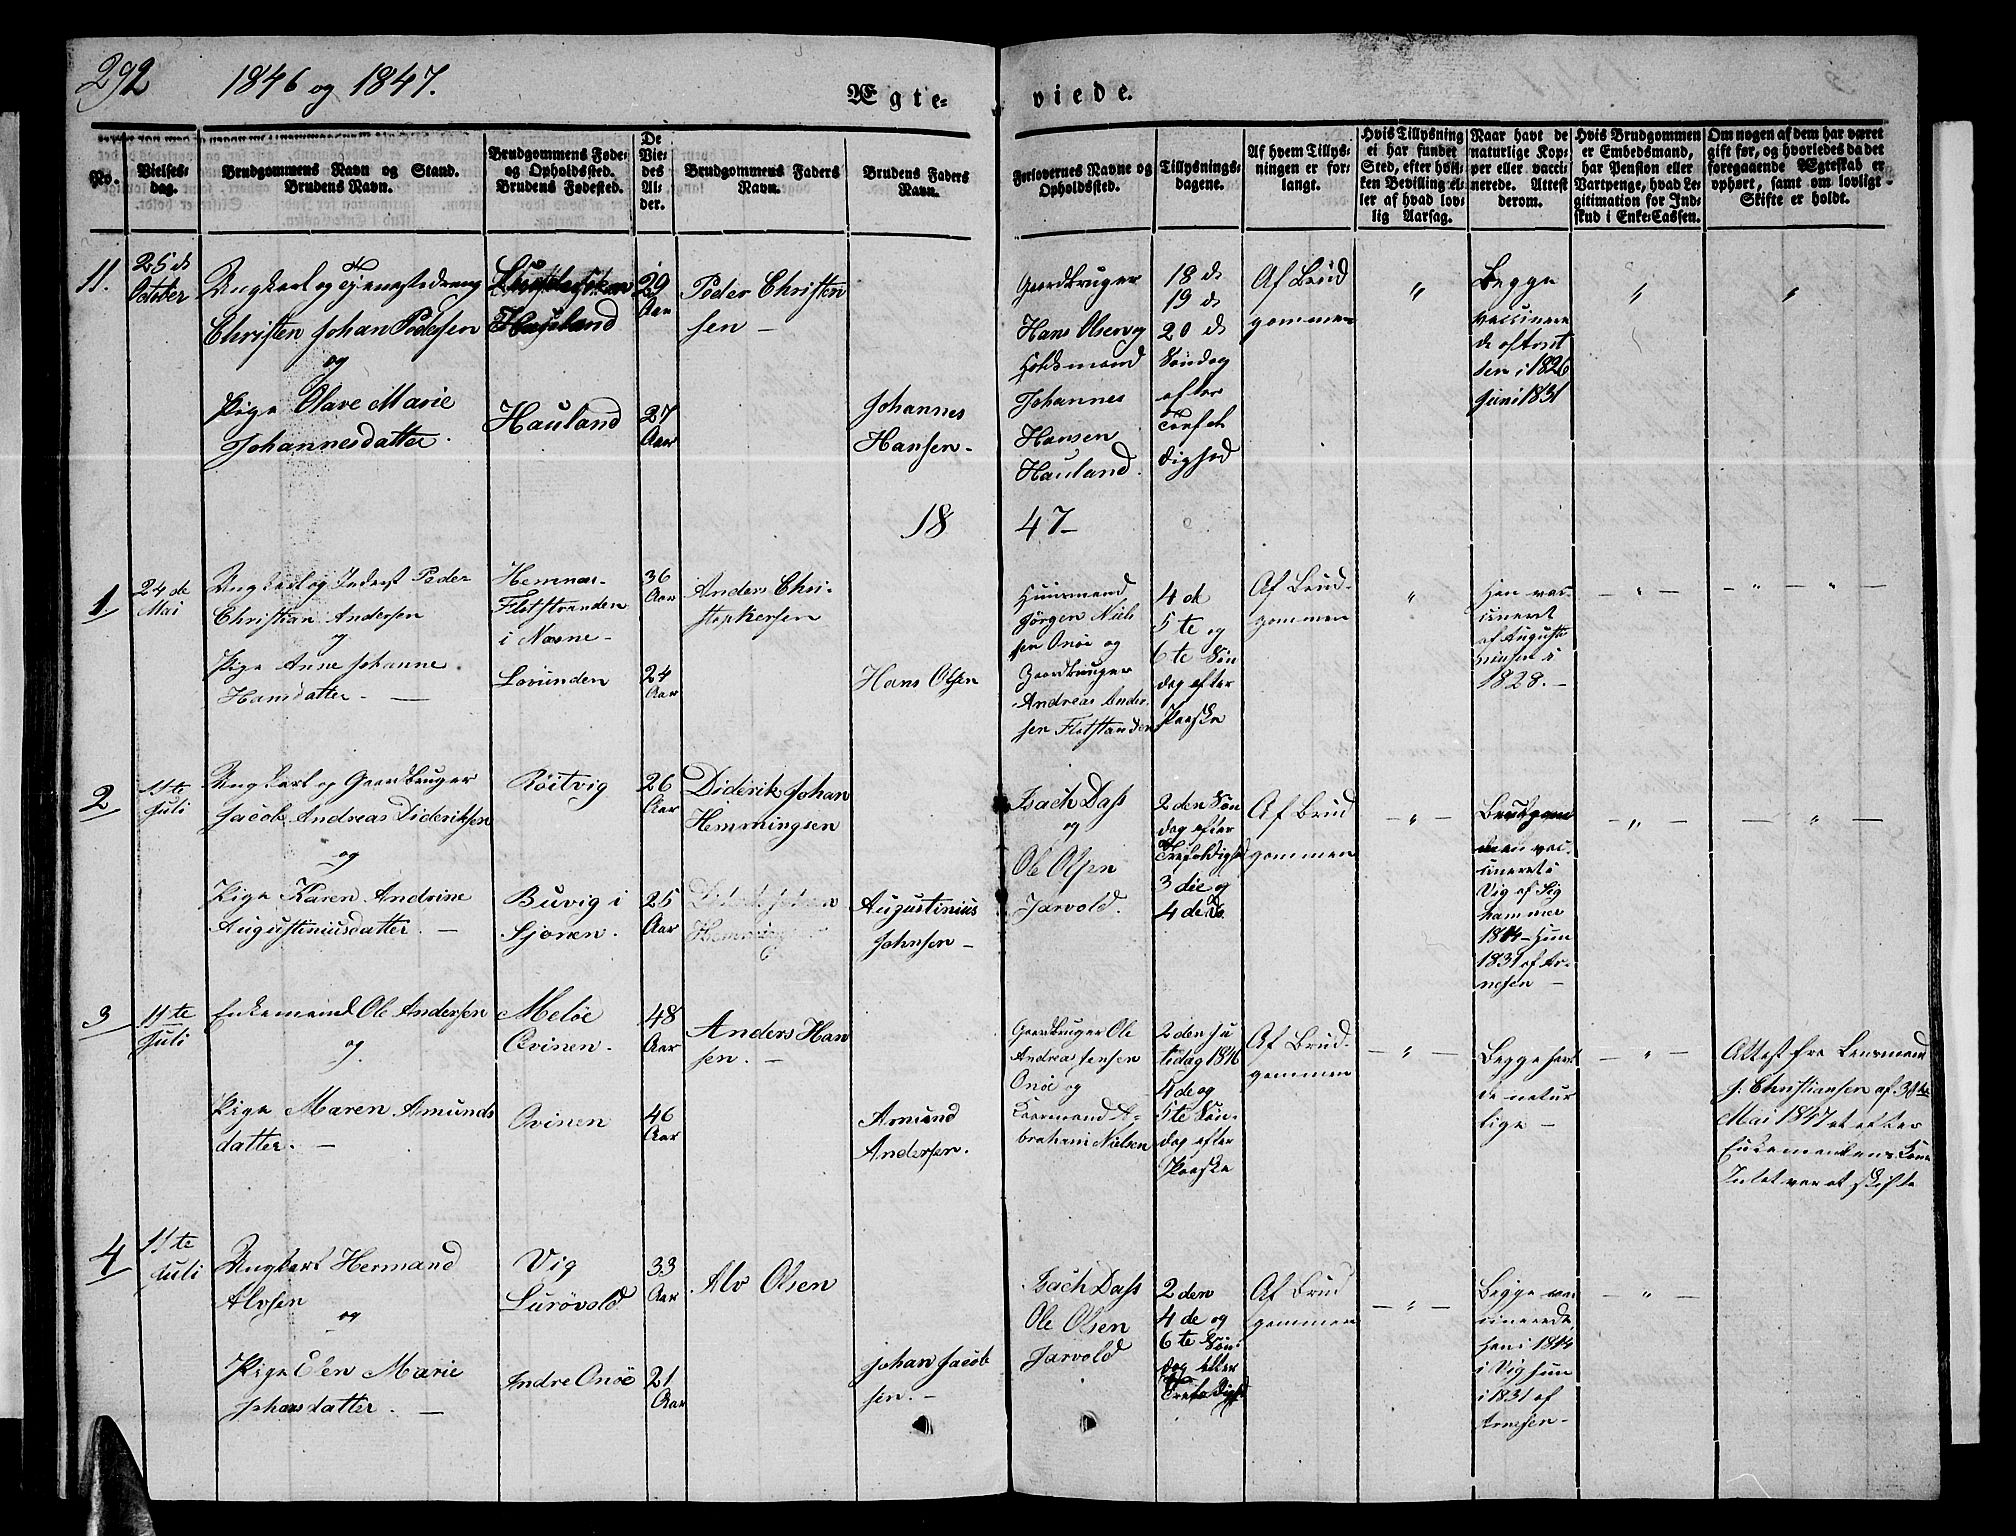 292
1846 og 1847.
Ægte-
viede.
No.
Vielses-
dag.
Brudgommens Navn og Stand.
Brudens Navn.
Brudgommens Føde-
og Opholdssted.
Brudens Fødested.
De
Vie-
des
Al-
der.
Brudgommens Faders
Navn.
Brudens Faders
Navn.
Forlovernes Navne og
Opholdssted.
Tillysnings-
dagene.
Af hvem Tillys-
ningen er for-
langt.
Hvis Tillysning
ei har fundet
Sted, efter hvil-
ken Bevilling el-
ler af hvad lov-
lig Aarsag.
Naar havt de
naturlige Kop-
per eller vacci-
nerede. Attest
derom.
Hvis Brudgommen
er Embedsmand,
har Pension eller
Vartpenge, hvad Le-
gitimation for Ind-
skud i Enke-Cassen.
Om nogen af dem har været
gift før, og hvorledes da det
foregaaende Ægteskab er
ophørt, samt om lovligt
Skifte er holdt.
11.
25 de
October
Ungkarl og Tjenestedreng
Christen Johan Pedersen
og
Pige Olave Marie
Johannesdatter.
Hauland
Hauland
29
Aar
27
Aar
Peder Christen
sen -
Johannes
Hansen -
Gaardbruger
Hans Olsen og
Holdsmand
Johannes
Hansen
Hauland.
18 de
19 de
20 de
Søndag
efter
Trefol
dighed
Af Brud
gommen
"
Begge
vaccinere
de af Arnt
sen i 1826
Juni 1831
"
"
18
47 -
1
24 de
Mai
Ungkarl og Inderst Peder
Christian Andersen
og
Pige Anne Johanne
Hansdatter -
Hemnæs-
Flotstranden
i Næsne -
Lovunden
36
Aar
24
Aar
Anders Chri-
stophersen
Hans Olsen
Huusmand
Jørgen Niel
sen Onøe og
Gaardbruger
Andreas Ander
sen Flotstranden
4 de
5 te og
6 te Søn
dag efter
Paaske
Af Brud-
gommen
"
Han vac-
cineret
af Augusti
nusen i
1828. -
- " -
- " - " -
2
11te
Juli
Ungkarl og Gaardbruger
Jacob Andreas Dideriksen
og
Pige Karen Andrine
Augustiniusdatter. -
Røitvig
Buvig i
Sjonen.
26
Aar
25
Aar
Diderik Johan
Hemmingsen
Augustinius
Johnsen -
Isach Dass
og
Ole Olsen
Jarvold.
2 den Søn
dag efter
Trefoldighed
3 die og
4 de Do
Af Brud
gommen
- " -
Brudgom
men vac-
cineret i
Vig af Sig
hammer
1814 - Hun
1831 af Ar-
nesen -
- " -
- " -
3
11te
Juli
Enkemand Ole Andersen
og
Pige Maren Amunds
datter. -
Meløe
Ovinen.
Ovinen
48
Aar
46
Aar
Anders Han
sen. -
Amund
Andersen.
Gaardbruger Ole
Andreas Jensen
Onøe og
Kaarmand A-
braham Nielsen
2 den Ju
ledag 1846
4 de og
5 te Søn-
dag efter
Paaske
Af Brud-
gommen
- " -
Begge havt
de natur
lige -
- " -
Attest fra Lensmand
J. Christiansen af
Mai 1847 at efter
Enkemandens Kone
Intet var at skifte
4
11te
Juli
Ungkarl Hermand
Alvsen
og
Pige Elen Marie
Johansdatter. -
Vig
Lurøvold
Indre Onøe
33
Aar
21
Aar
Alv Olsen
Johan Jacob
sen. -
Isach Dass
Ole Olsen
Jarvold
2 den
4 de og
6 te Søn-
dag efter
Trefoldighed
Af Brud
gommen
- " -
Begge vac
cinerede,
Han i 1814
i Vig Hun
i 1831 af
Arnesen -
- " -